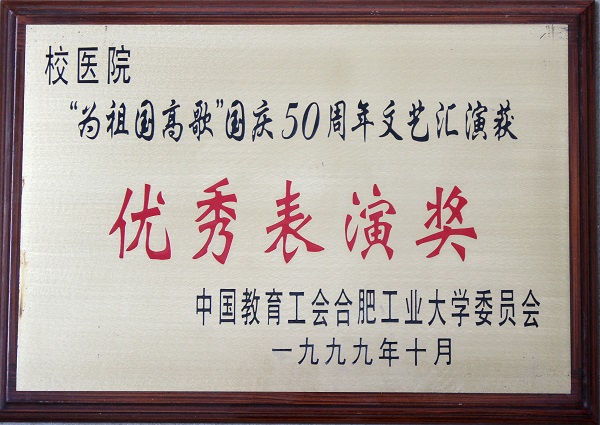 校医院
“为祖国高歌”国庆50周年文艺汇演获
优秀表演奖
中国教育工会合肥工业大学委员会
一九九九年十月